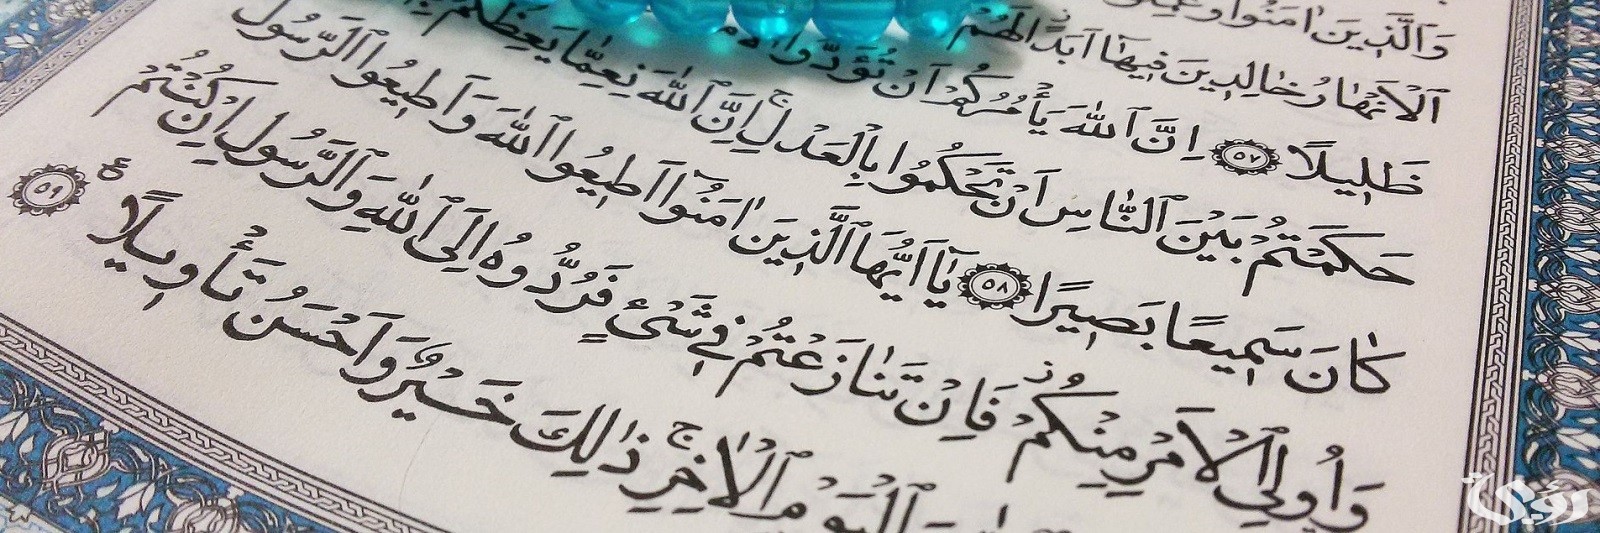 وَالَّذِينَ اٰمَنُوا وَعَمِلُوا
الْاَنْهَارُ خَالِدِينَ فِيهَٓا اَبَدًا لَهُمْ
ظَلِيلًا ﴿٥٧﴾ اِنَّ اللّٰهَ يَأْمُرُكُمْ اَنْ تُؤَدُّوا
حَكَمْتُمْ بَيْنَ النَّاسِ اَنْ تَحْكُمُوا بِالْعَدْلِ اِنَّ اللّٰهَ نِعِمَّا يَعِظُكُمْ
كَانَ سَمِيعًا بَصِيرًا ﴿٥٨﴾ يَٓا اَيُّهَا الَّذِينَ اٰمَنُٓوا اَطِيعُوا اللّٰهَ وَاَطِيعُوا الرَّسُولَ
وَاُولِي الْاَمْرِ مِنْكُمْ فَاِنْ تَنَازَعْتُمْ فِي شَيْءٍ فَرُدُّوهُ اِلَى اللّٰهِ وَالرَّسُولِ اِنْ كُنْتُمْ
الْيَوْمِ الْاٰخِرِ ذٰلِكَ خَيْرٌ وَاَحْسَنُ تَأْوِيلًا ﴿٥٩﴾
رؤى